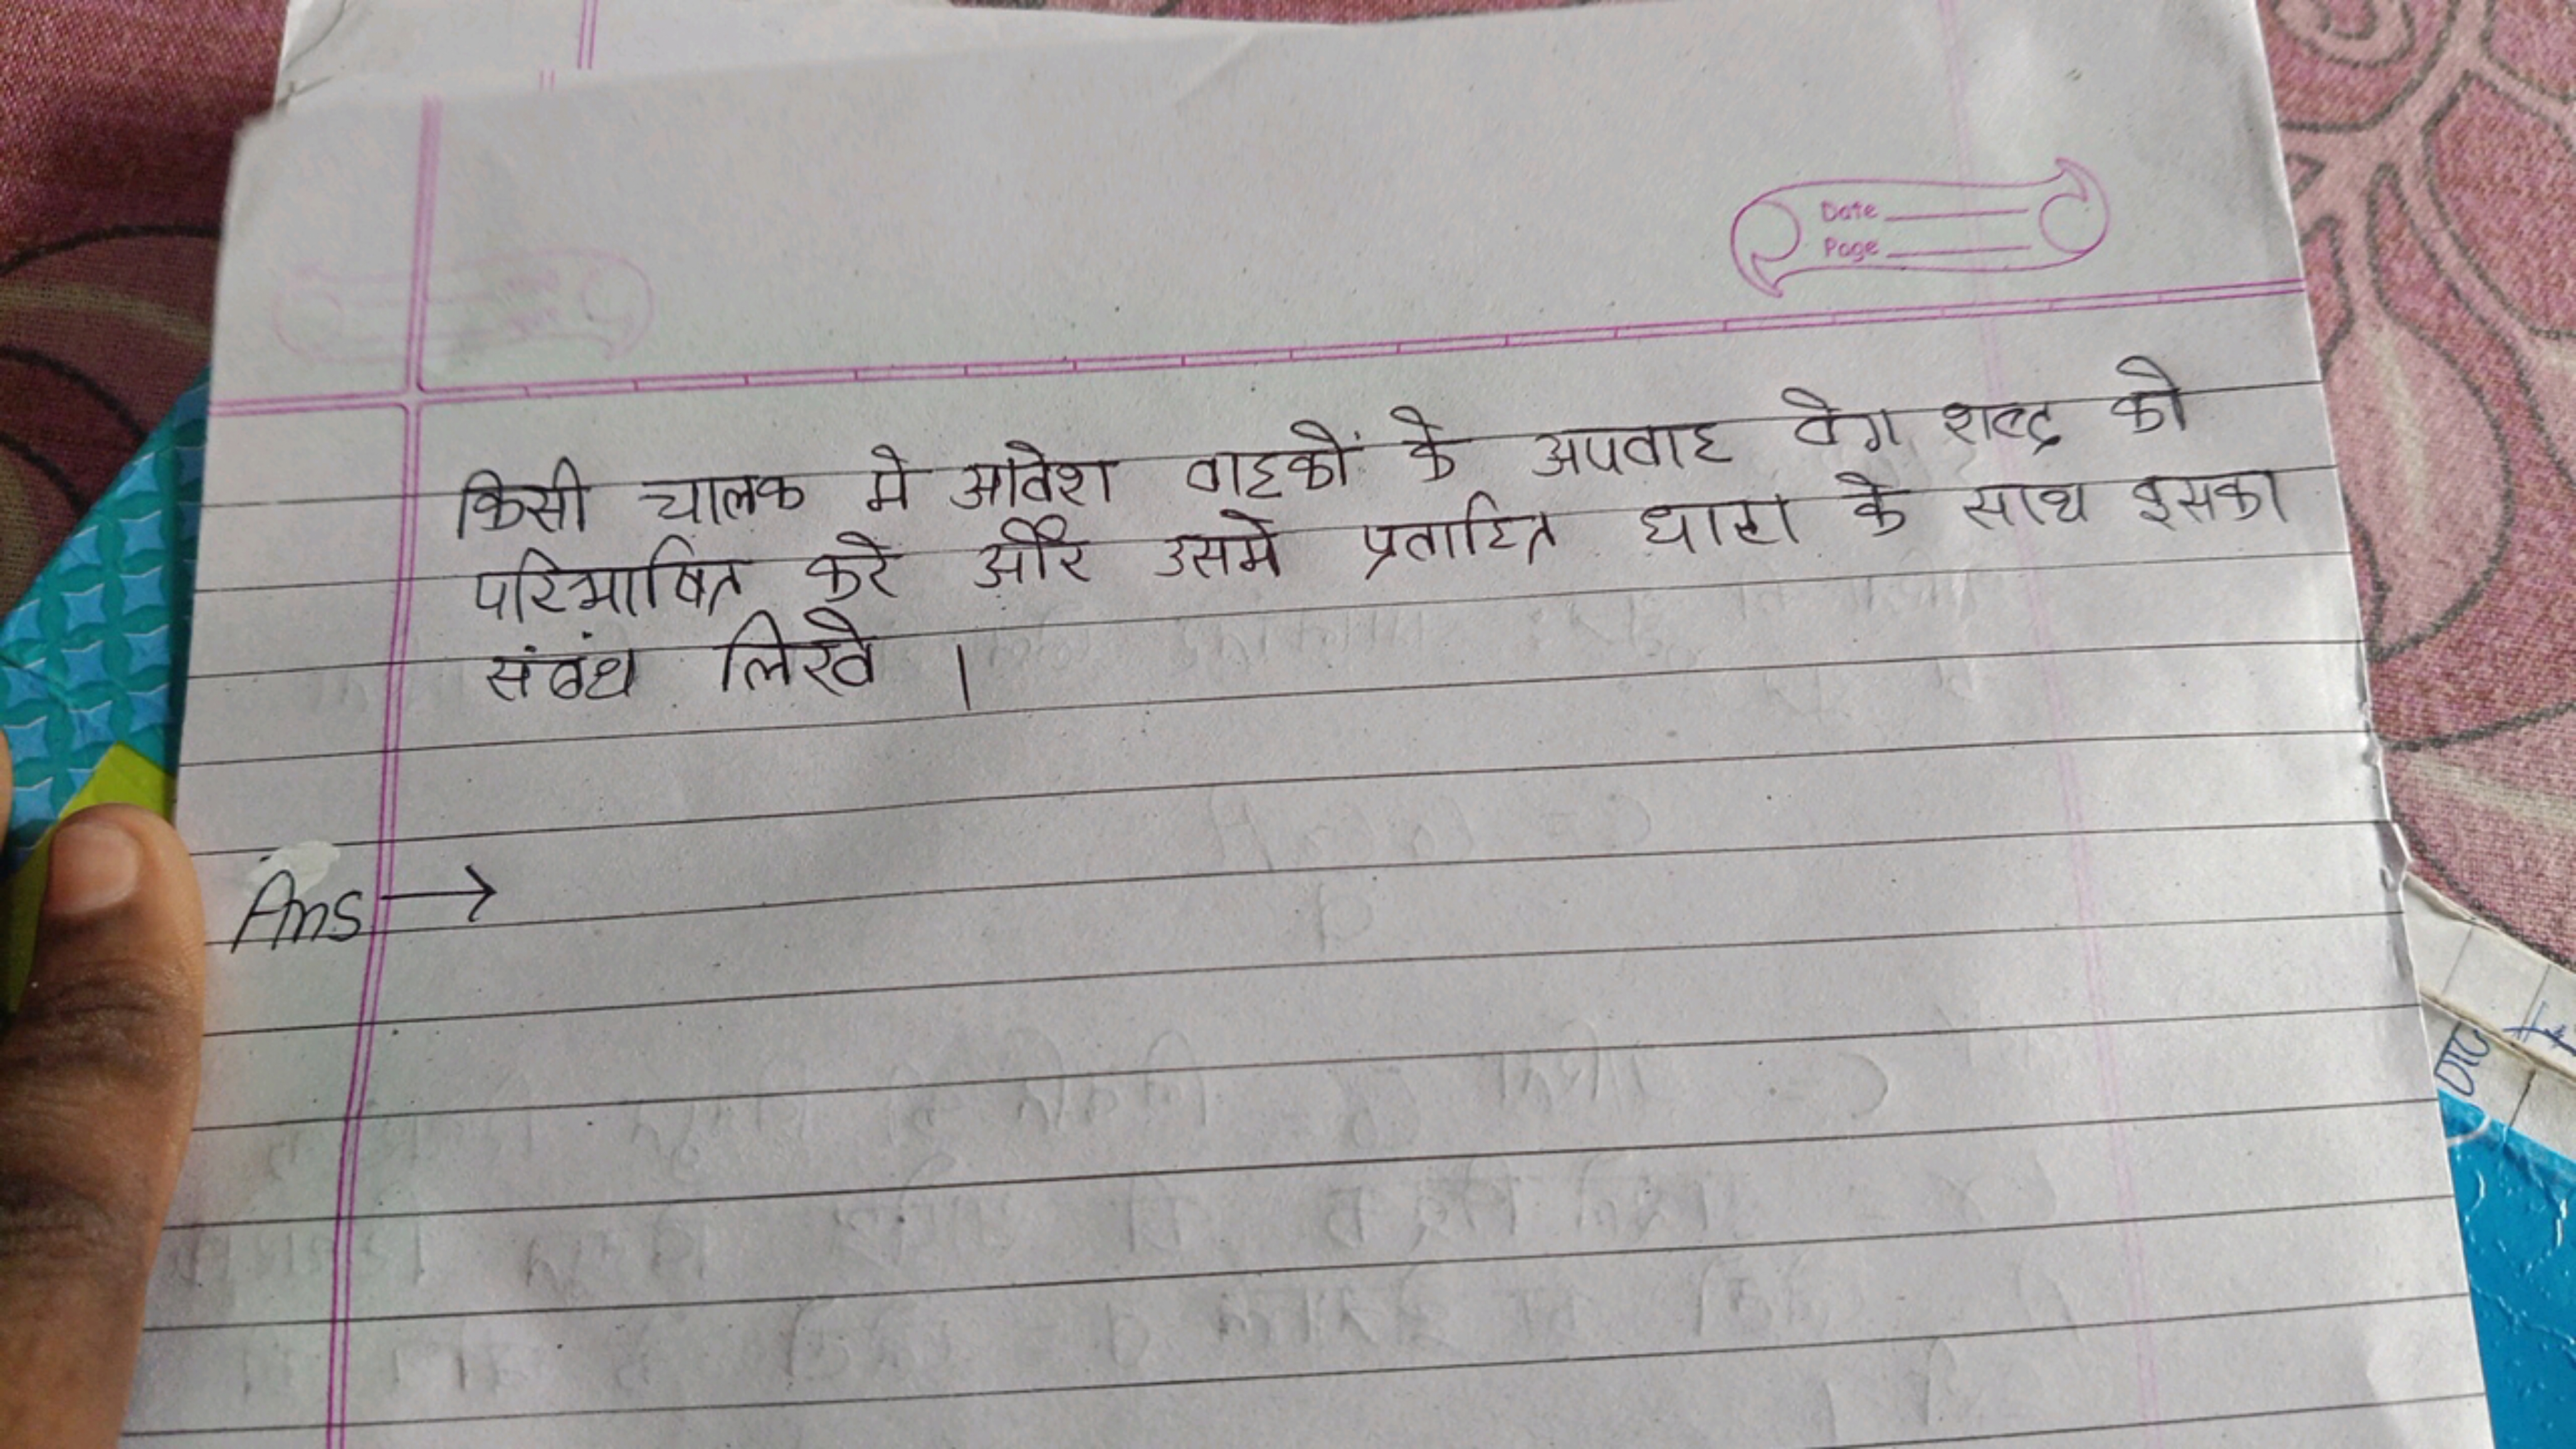 Date
Page
किसी चालक मे आवेश वाहकों के अपवाह वेग शब्द को
परिभाषित करे और उसमे प्रवाहित धारा के साथ इसका
संबंध लिखे ।
Ans →